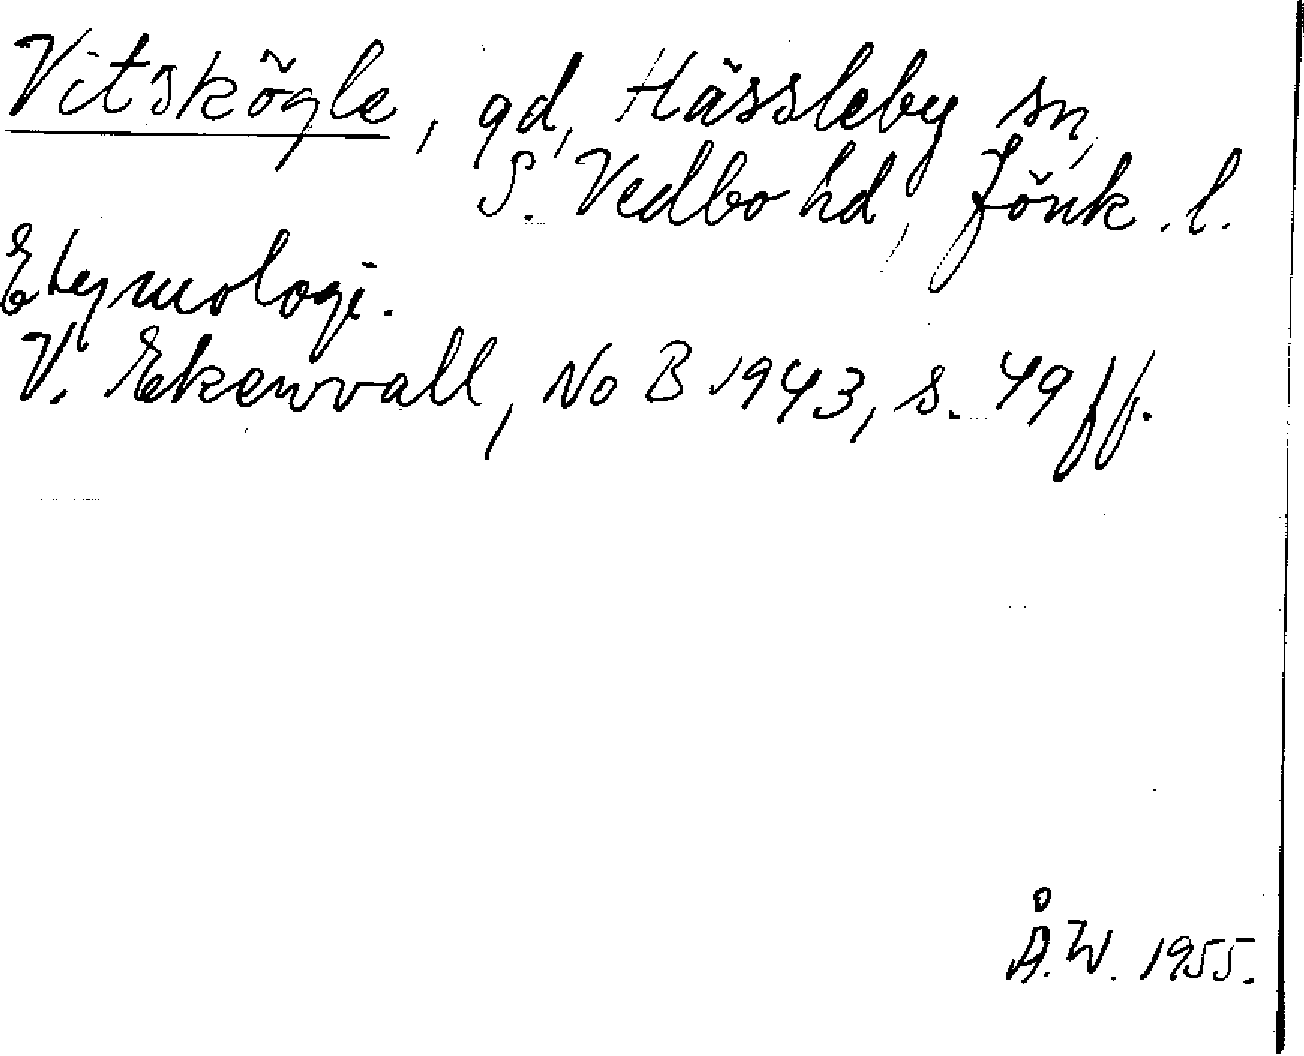 Vitskögle, gd, Hässleby sn,
S. Vedbo hd, Jönk. l.
Etymologi.
V. Ekenvall, NoB 1943, s. 49 ff.
Å.W. 1955.